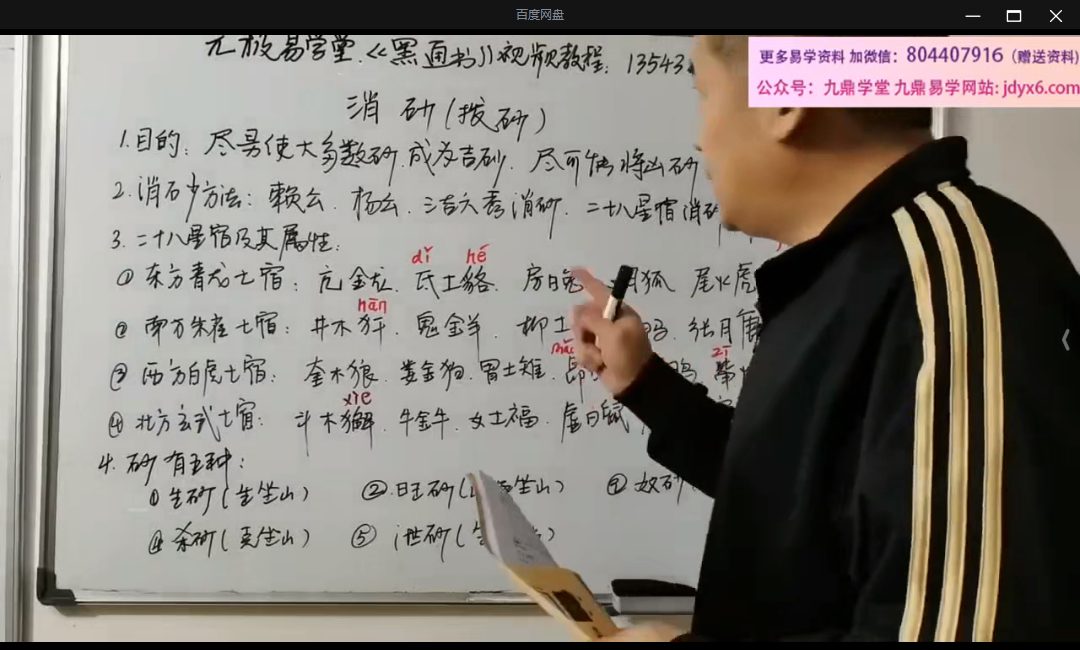 百度网盘
更多易学资料 加微信：804407916（赠送资料)
公众号：九鼎学堂 九鼎易学网站: jdyx6.com
元极易学堂.《黑通书》视频教程：13543
消 砂（拨砂）
1.目的：尽量使大多数砂.成为吉砂. 尽可能将凶砂
2.消砂方法：赖公. 杨公. 三吉六秀消砂. 二十八星宿消砂
3.二十八星宿及其属性：
dǐ hé
①东方青龙七宿：亢金龙. 氐土貉. 房日兔 月狐 尾火虎
hān
②南方朱雀七宿：井木犴. 鬼金羊. 柳土 张月
zī
③西方白虎七宿：奎木狼. 娄金狗. 胃土雉. 昴
xiè
④北方玄武七宿：斗木獬. 牛金牛. 女土福. 虚日鼠
4.砂有五种：
①生砂（生坐山） ②.旺砂（ 坐山） 奴砂
④杀砂（克坐山） ⑤泄砂（